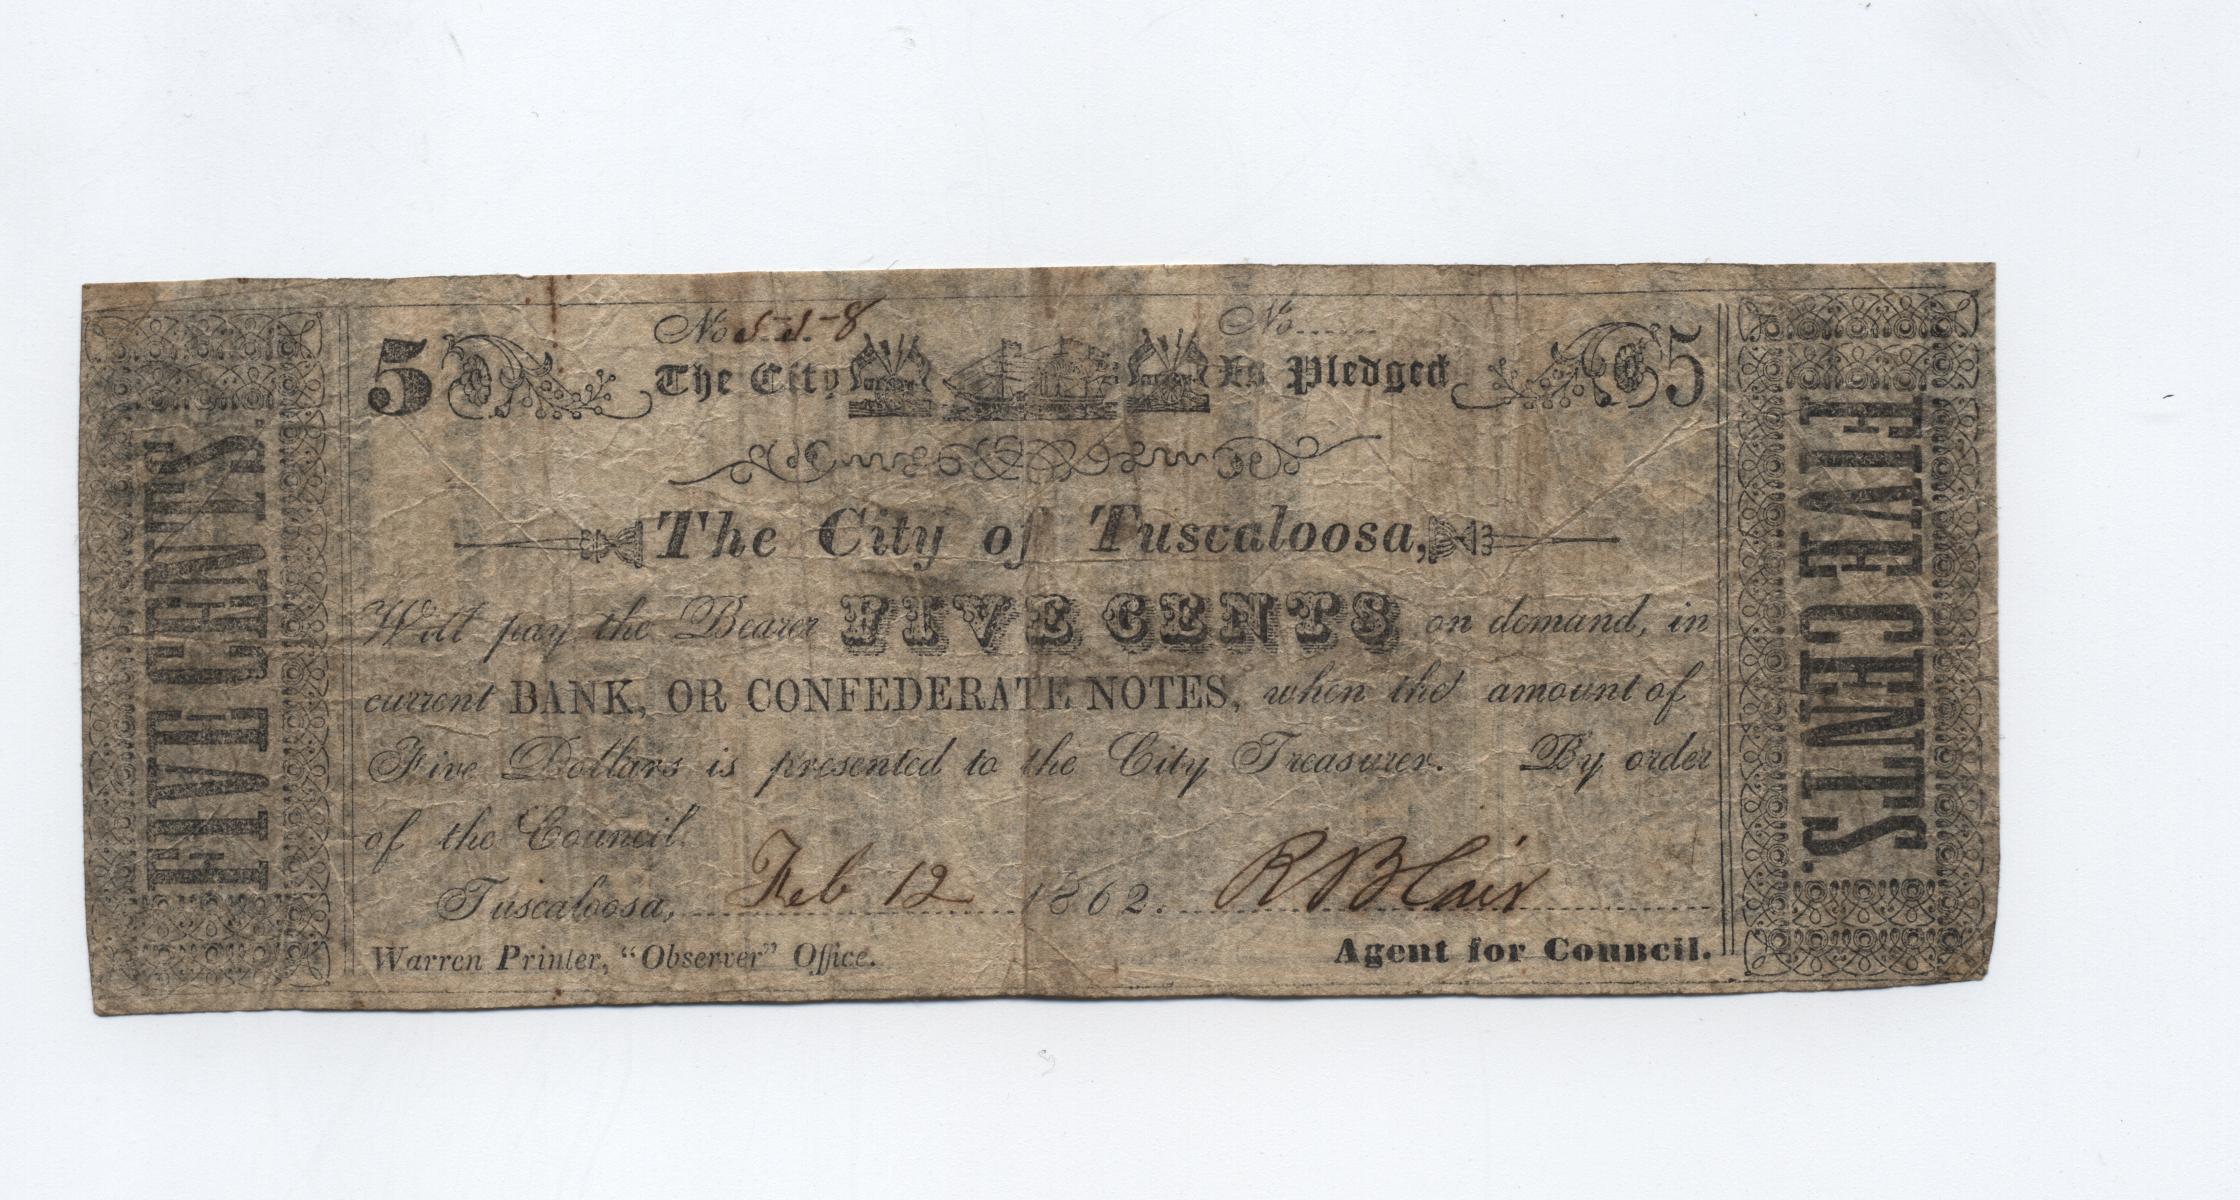 FIVE CENTS.
No 558 No
5 The City Is Pledged 5
The City of Tuscaloosa,
Will pay the Bearer FIVE CENTS on demand, in
current BANK, OR CONFEDERATE NOTES, when the amount of
Five Dollars is presented to the City Treasurer. By order
of the Council.
Tuscaloosa, Feb 12 1862. R Blair
Warren Printer, "Observer" Office. Agent for Council.
FIVE CENTS.